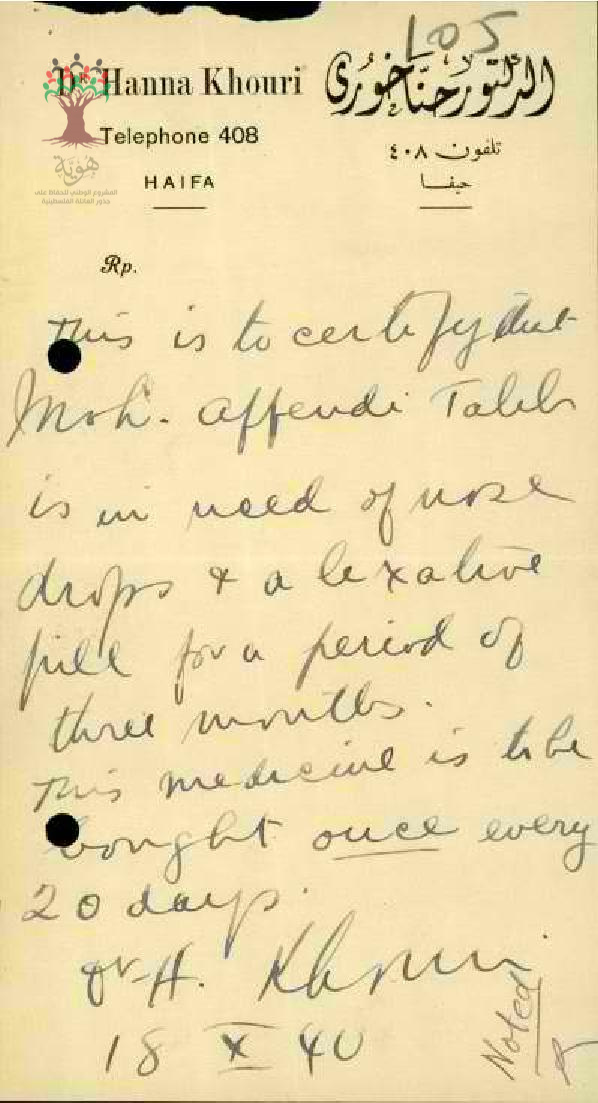 105
Dr. Hanna Khouri
الدكتور حنا خوري
Telephone 408
تلفون ٤٠٨
HAIFA
حيفا
هوية
المشروع الوطني للحفاظ على
جذور العائلة الفلسطينية
Rp.
This is to certify that
Moh. Affendi Taleb
is in need of nose
drops & a lexative
pill for a period of
three months.
This medicine is to be
bought once every
20 days.
Dr. H. Khouri
18 X 40
Noted